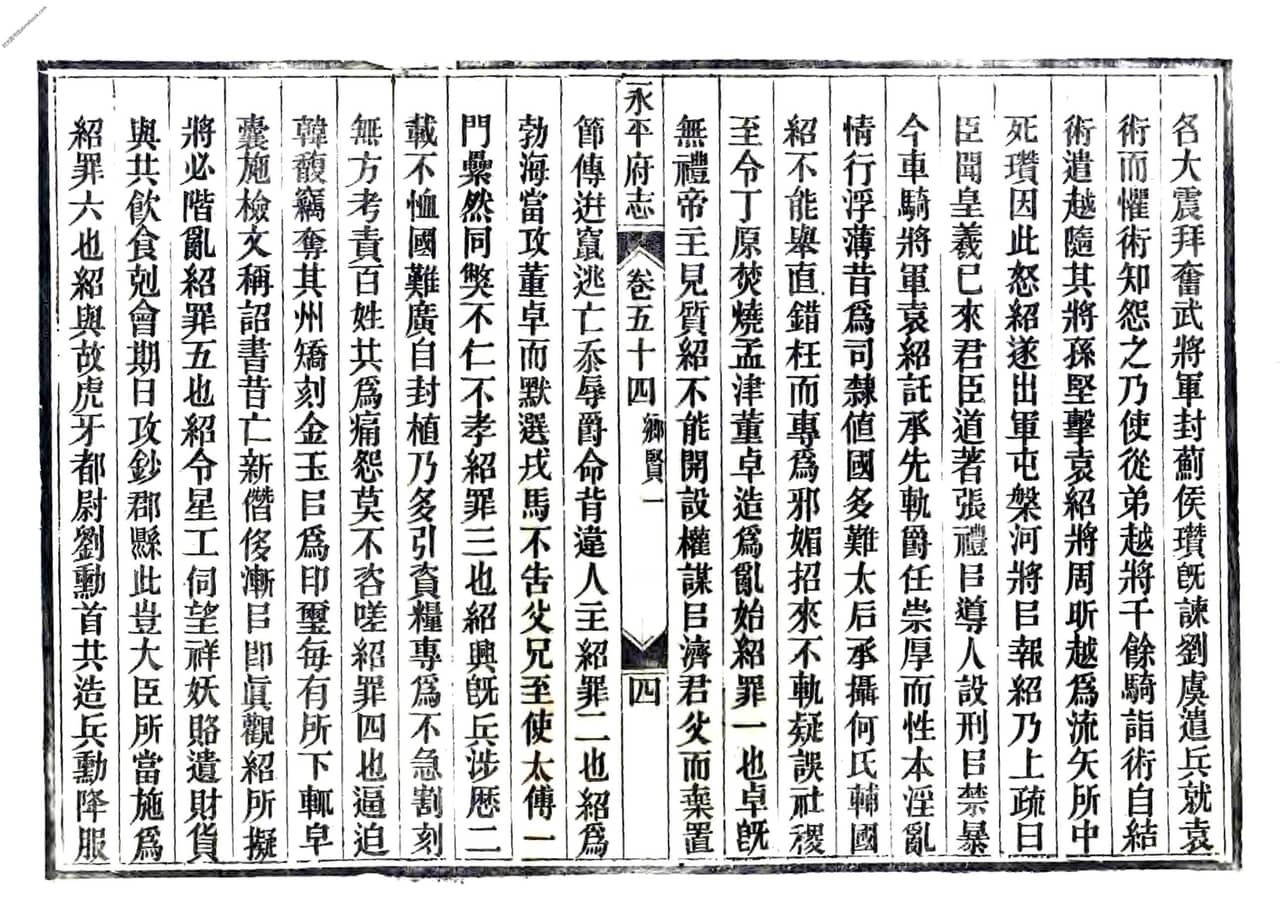 各大震拜奮武將軍封薊侯瓚旣諫劉虞遣兵就袁
術而懼術知怨之乃使從弟越將千餘騎詣術自結
術遣越隨其將孫堅擊袁紹將周昕越爲流矢所中
死瓚因此怒紹遂出軍屯槃河將㠯報紹乃上疏曰
臣聞皇羲已來君臣道著張禮㠯導人設刑㠯禁暴
今車騎將軍袁紹託承先軌爵任崇厚而性本淫亂
情行浮薄昔爲司隸値國多難太后承攝何氏輔國
紹不能舉直錯枉而專爲邪媚招來不軌疑誤社稷
至令丁原焚燒孟津董卓造爲亂始紹罪一也卓旣
無禮帝主見質紹不能開設權謀㠯濟君父而棄置
永平府志 卷五十四 鄉賢一 四
節傳迸竄逃亡忝辱爵命背違人主紹罪二也紹爲
勃海當攻董卓而默選戎馬不告父兄至使太傅一
門纍然同獘不仁不孝紹罪三也紹興旣兵涉厯二
載不恤國難廣自封植乃多引資糧專爲不急割刻
無方考責百姓其爲痛怨莫不咨嗟紹罪四也逼迫
韓馥竊奪其州矯刻金玉㠯爲印璽每有所下輒皁
囊施檢文稱詔書昔亡新僭侈漸㠯卽眞觀紹所擬
將必階亂紹罪五也紹令星工伺望祥妖賂遺財貨
與共飮食剋會期日攻鈔郡縣此豈大臣所當施爲
紹罪六也紹與故虎牙都尉劉勳首共造兵勳降服